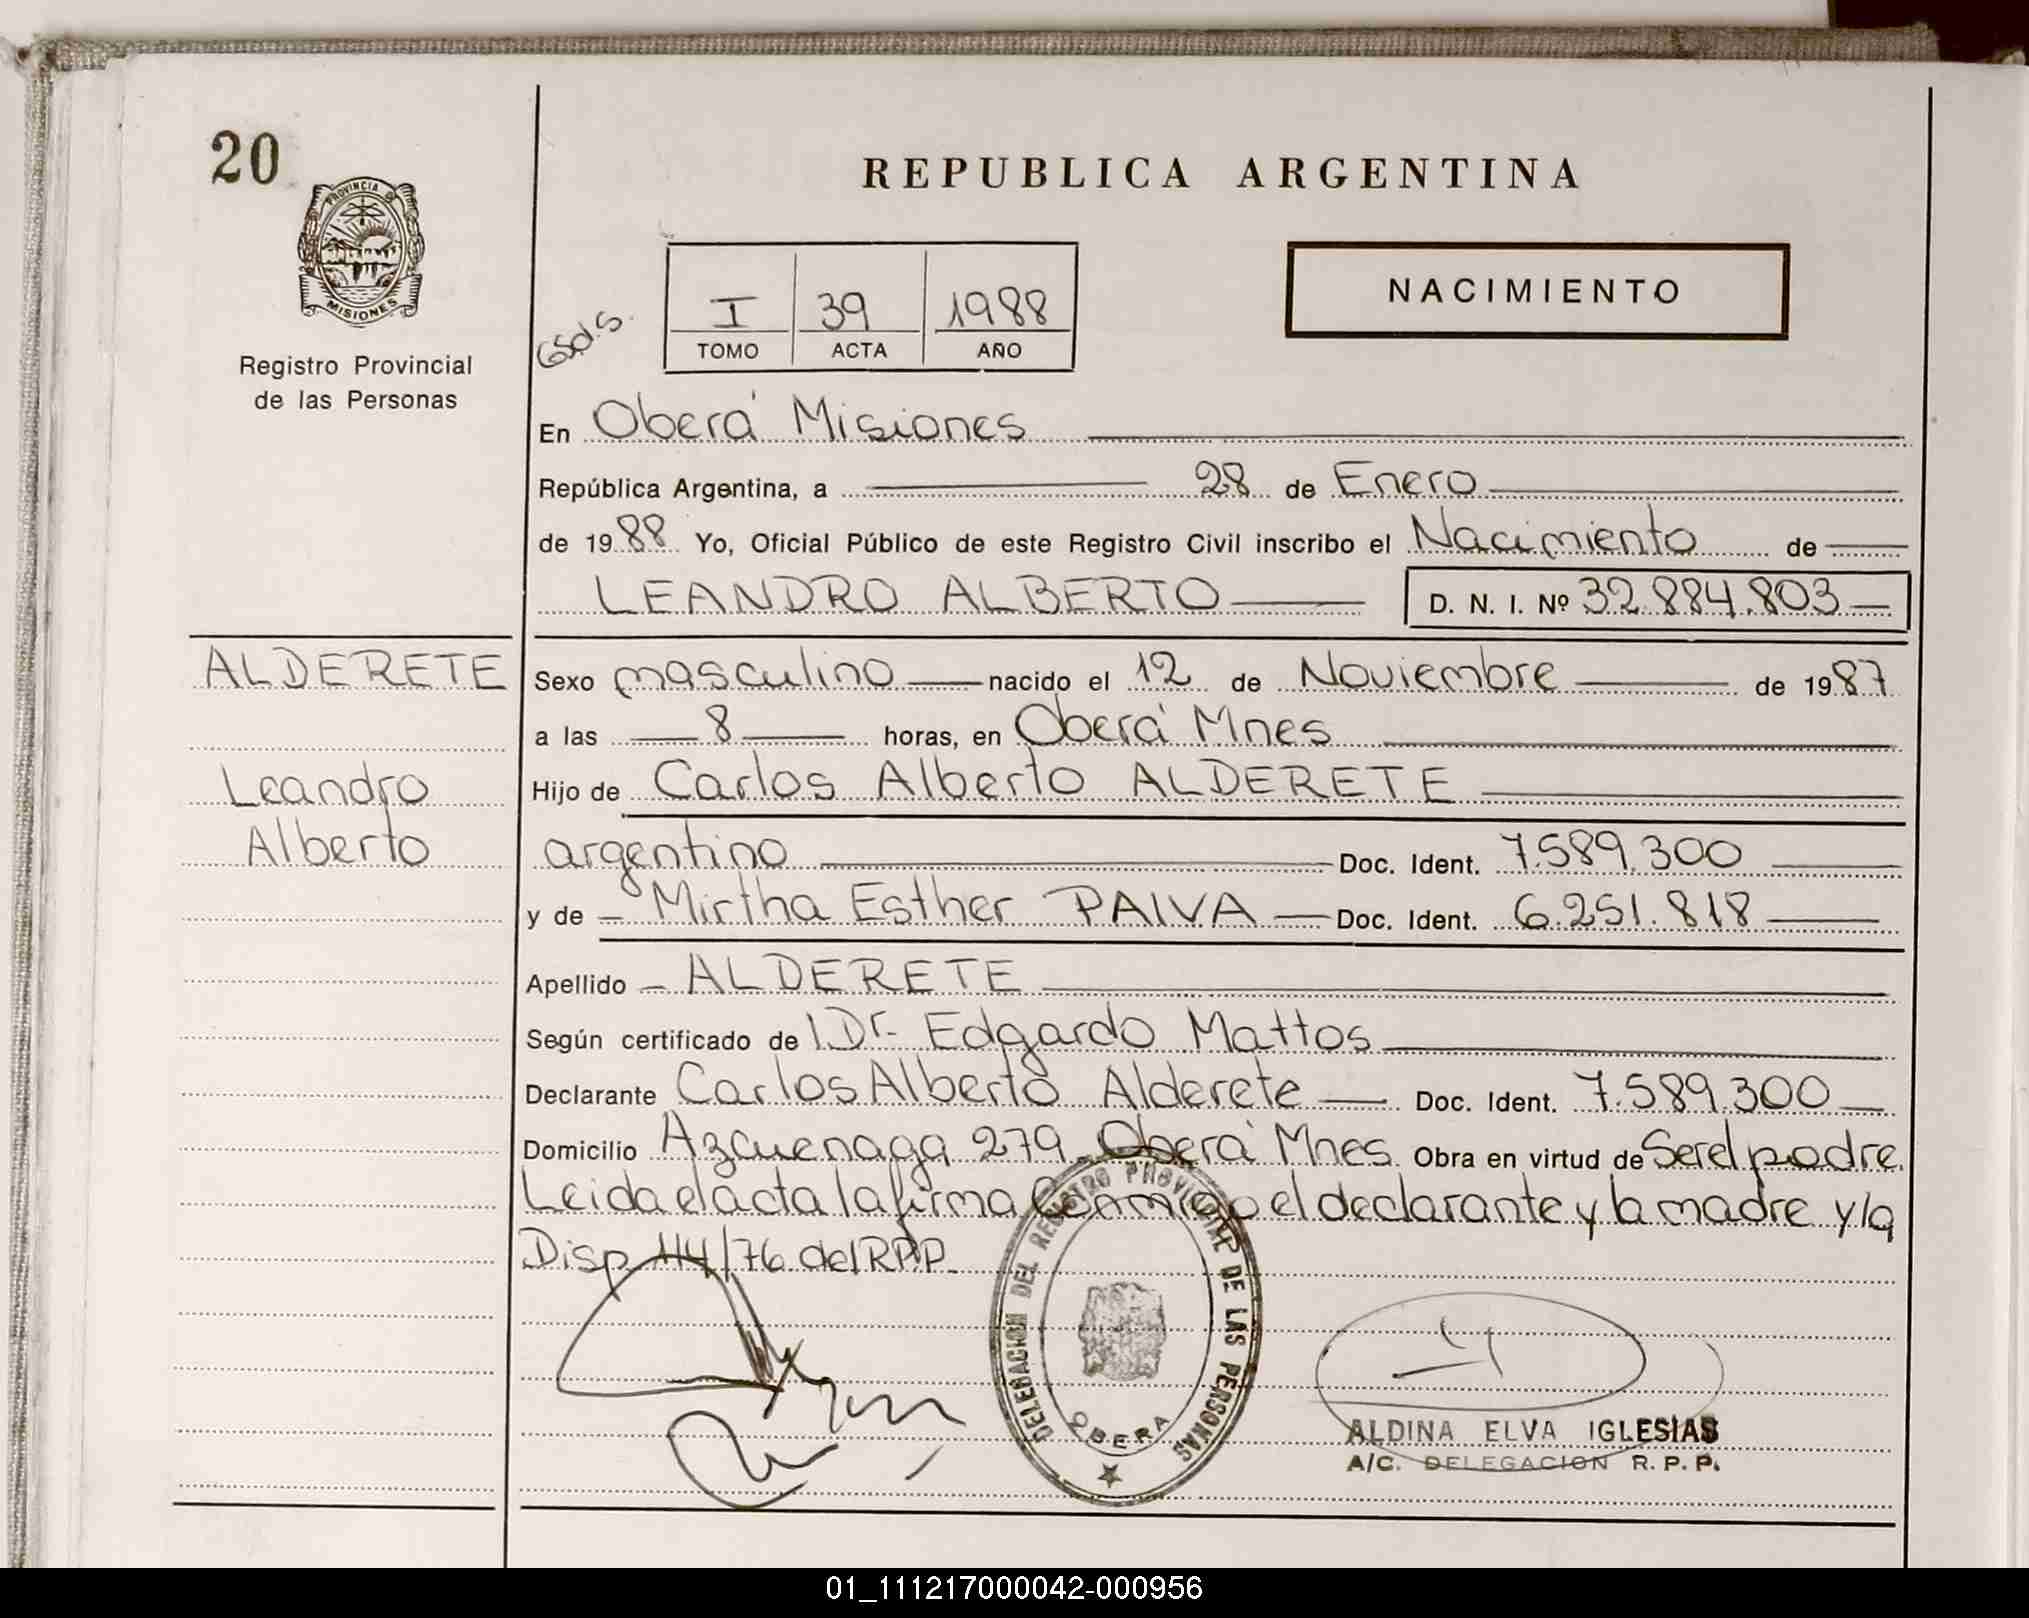 20
PROVINCIA
MISIONES
Registro Provincial
de las Personas
REPUBLICA ARGENTINA
I 39 1988
TOMO ACTA AÑO
NACIMIENTO
En Oberá Misiones
República Argentina, a 28 de Enero
de 1988 Yo, Oficial Público de este Registro Civil inscribo el Nacimiento de
LEANDRO ALBERTO D. N. I. Nº 32.884.803
ALDERETE
Leandro
Alberto
Sexo masculino nacido el 12 de Noviembre de 1987
a las 8 horas, en Oberá Mnes
Hijo de Carlos Alberto ALDERETE
argentino Doc. Ident. 7.589.300
y de Mirtha Esther PAIVA Doc. Ident. 6.251.818
Apellido ALDERETE
Según certificado de Dr. Edgardo Mattos
Declarante Carlos Alberto Alderete Doc. Ident. 7.589.300
Domicilio Azcuenaga 279 Oberá Mnes Obra en virtud de Ser el padre.
Leida el acta la firma Conmigo el declarante y la madre y la
Disp 114/76 del RPP
DELEGACION DEL REGISTRO PROVINCIAL DE LAS PERSONAS
OBERA
ALDINA ELVA IGLESIAS
A/C. DELEGACION R. P. P.
01_111217000042-000956